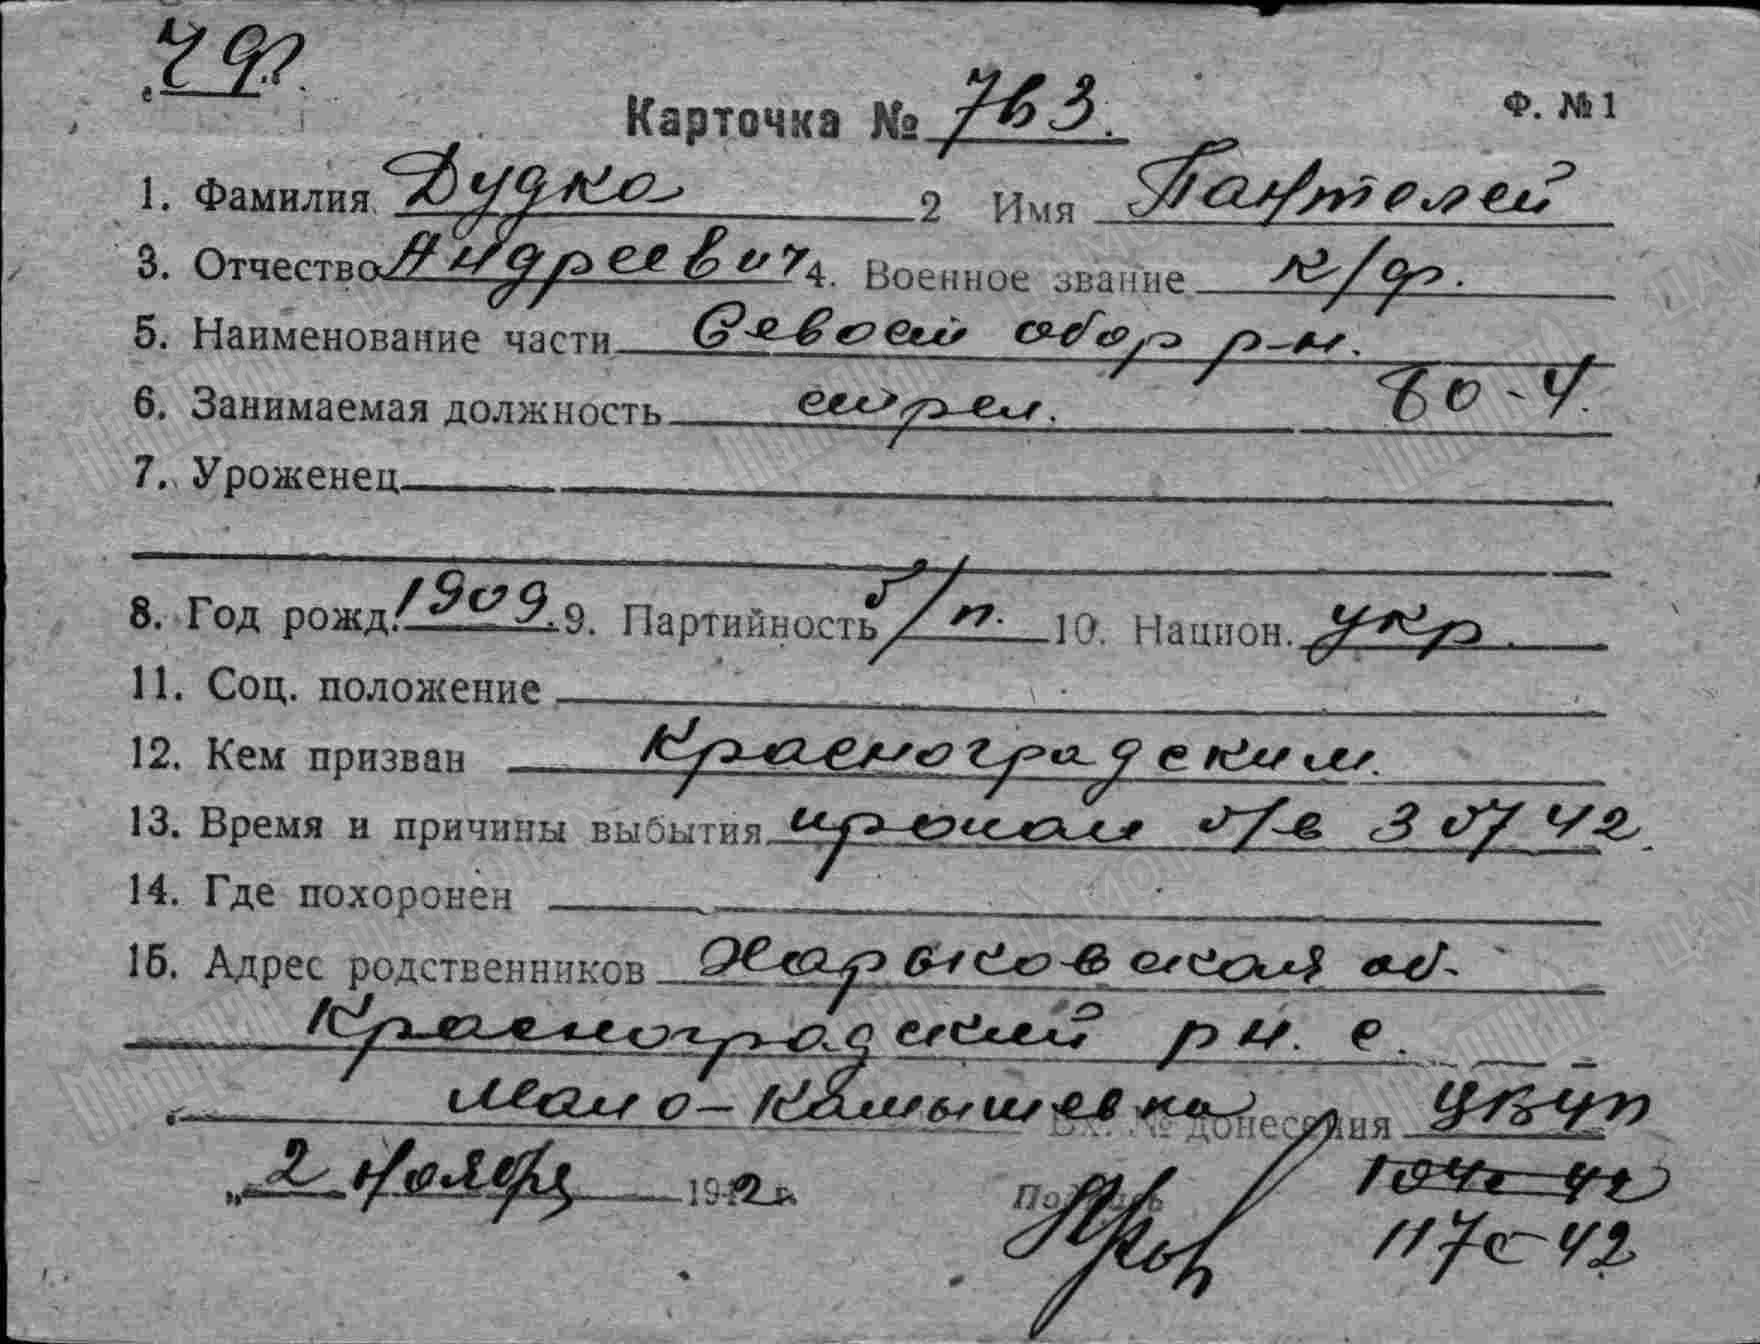 ЧФ.
Карточка № 763.
Ф. № 1
1. Фамилия Дудка 2 Имя Пантелей
3. Отчество Андреевич 4. Военное звание к/ф.
5. Наименование части Севаст обор р-н.
6. Занимаемая должность стрел. ВО-Ч.
7. Уроженец
8. Год рожд. 1909. 9. Партийность б/п. 10. Национ. укр.
11. Соц. положение
12. Кем призван Красноградским.
13. Время и причины выбытия пропал б/в 3 07 42.
14. Где похоронен
15. Адрес родственников Харьковская об.
Красноградский р н. с.
Мало-Камышевка Вх. № донесения
„2 Ноября 1942 г. Подпись
117с 42